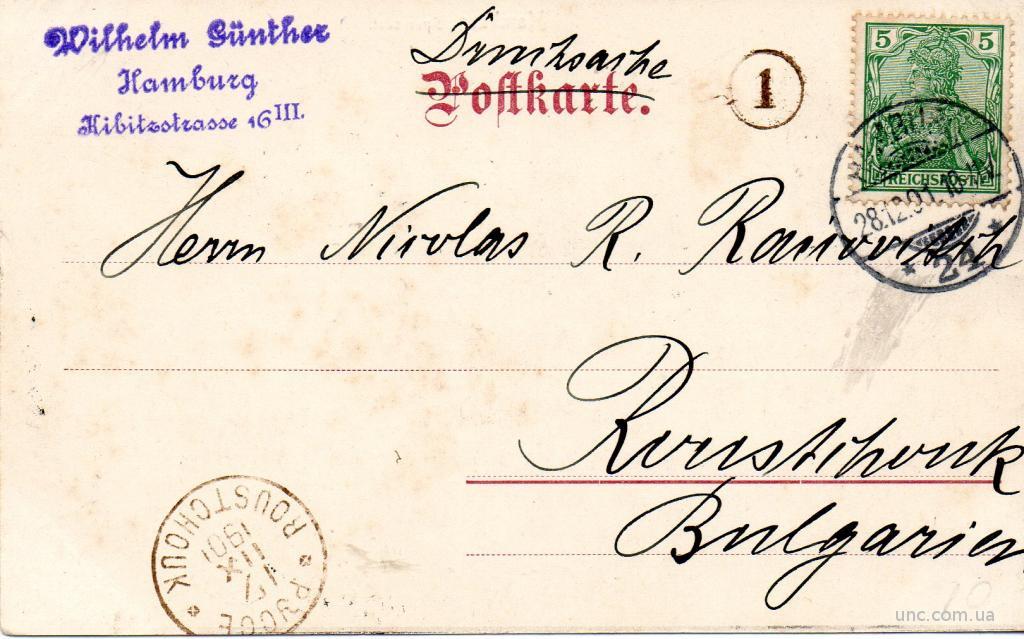 Wilhelm Günther
Hamburg
Kibitzstrasse 16 III.
Drucksache
Postkarte.
1
5 5
REICHSPOST
HAMBURG
28.12.01.10-11
* 24 *
Herrn Nicolas R.
Roustchouk
Bulgarien
ROUSTCHOUK
РУССЕ
17
XII
1901
unc.com.ua